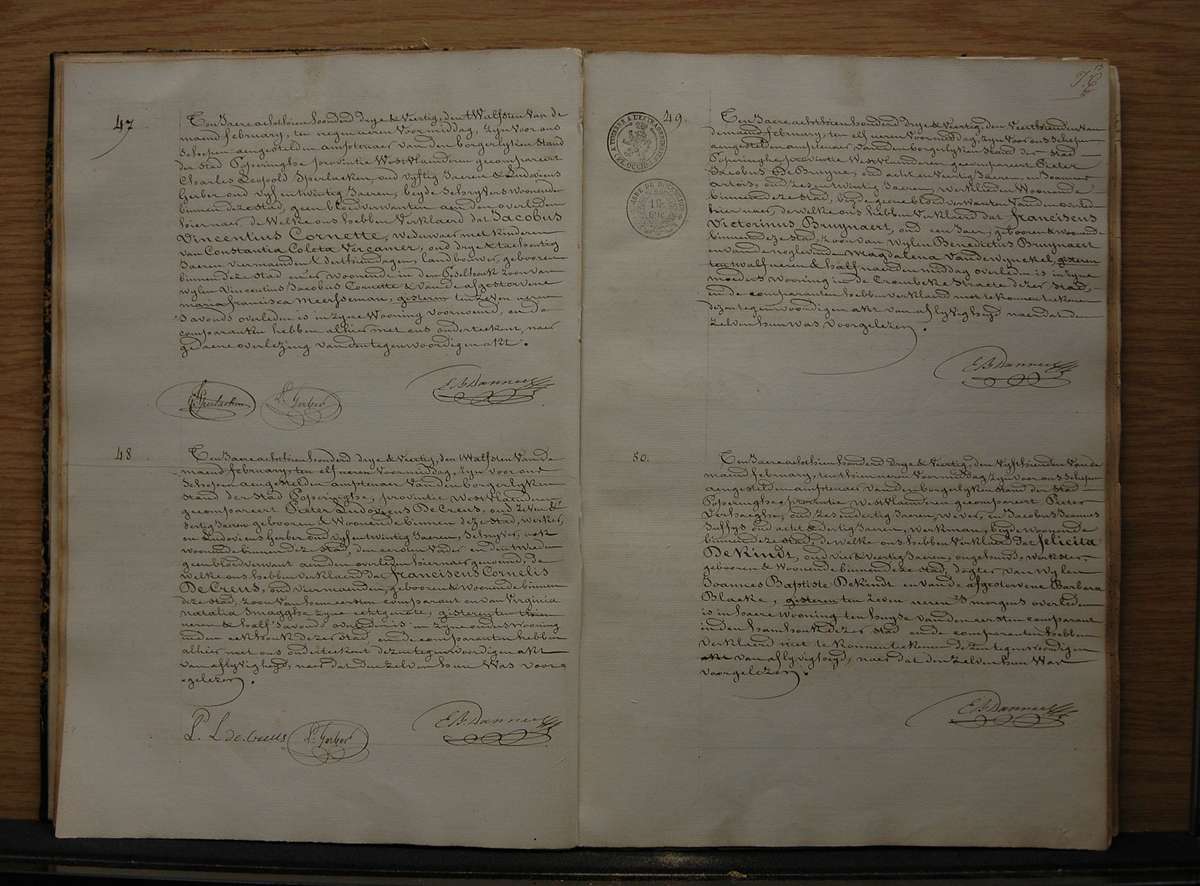 47
Ten Jaere achthien honderd drye & Veertig, den twalfsten van de
maend february, ten negen uren voor middag, zyn voor ons
Schepen aengestelden amptenaer van den borgerlyken Stand
der Stad Poperinghe provintie WestVlaenderen gecompareert
Charles Leopold Sperlaeken, oud vyftig Jaeren & Ludovicus
Gerber oud vyf en twintig Jaeren, beyde Schryvers Woonende
binnen deze Stad, gebuers van den overleden
hier naer, de Welke ons hebben Verklaerd dat Jacobus
Vincentius Cornette, weduwaer met kinderen
van Constantia Coleta Vercamer, oud drye & tachentig
Jaeren vier maenden & derthien dagen, landbouwer, geboren
binnen deze Stad en er woonende in den zoon van
wylen Vincentius Jacobus Cornette & van de afgestorvene
maria francisca Meersseman, gisteren ten zeven uren
s'avonds overleden is in zyne Wooning voornoemd, en de
comparanten hebben alhier met ons onderteekent, naer
gedaene overlezing van den tegenwoordigen akt.
L. Gerber
48
Ten Jaere achthien honderd drye & Veertig, den twalfsten Van de
maend february, ten elf uren Voormiddag, zyn voor ons
Schepen aengestelden amptenaer Van den borgerlyken
Stand der Stad Poperinghe, provintie West Vlaenderen
gecompareert Pieter Ludovicus De Creus, oud zeven &
dertig Jaeren geboren & Woonende binnen deze Stad, werker,
en Ludovicus Gerber oud vyf en twintig Jaeren, Schryver, ook
woonende binnen deze Stad, den eersten Vader en den tweeden
gebuer van den overleden hier naer genoemd, de
welke ons hebben verklaerd dat franciscus Cornelis
De Creus, oud vier maenden, geboren & woonende binnen
deze Stad, zoon van hem eersten comparant en van Virginia
natalia Smagghe zyne echtgenote, gisteren ten thien
uren & half s'avonds overleden is in zyne ouders wooning
in den eekhoek dezer Stad en de comparanten hebben
alhier met ons onderteekent dezen tegenwoordigen akt
van aflyvigheyd, naer dat den zelven hun Was voor-
gelezen.
P. L de Creus L. Gerber
49.
Ten Jaere achthien honderd drye & Veertig, den Veerthienden van
de maend february, ten elf uren Voormiddag, zyn voor ons Schepen
aengestelden amptenaer van den borgerlyken Stand der Stad
Poperinghe provintie West Vlaenderen gecompareert Pieter
Jacobus De Bruyne, oud acht en Veertig Jaeren en Joannes
artois, oud zes en twintig Jaeren, werklieden Woonende
binnen deze Stad, beyde van den overleden
hier naer, de welke ons hebben Verklaerd dat franciscus
Victorinus Bruynaert, oud een Jaer, geboren & woonende
binnen deze Stad, zoon van Wylen Benedictus Bruynaert
en van de nog levende Magdalena Vandewynckel, gisteren
ten twalf uren & half naer den middag overleden is in zyne
moeders wooning in de Crombeke Straete dezer Stad,
en de comparanten hebben verklaerd niet te konnen teekenen
dezen tegenwoordigen akt van aflyvigheyd naer dat den
zelven hun was voorgelezen.
50.
Ten Jaere achthien honderd drye & Veertig, den vyfthienden Van de
maend february, ten thien uren Voormiddag zyn voor ons Schepen
aengestelden amptenaer Van den borgerlyken Stand der Stad
Poperinghe provintie West Vlaenderen gecompareert Pieter
Verhaeghe, oud zes en dertig Jaeren, wever, en Jacobus Joannes
oud acht & dertig Jaeren, werkman, beyde woonende
binnen deze Stad, de welke ons hebben Verklaerd dat felicita
De Kindt, oud vier & veertig Jaeren, ongehuwd, werkster,
geboren & Woonende binnen deze Stad, dogter van Wylen
Joannes Baptiste De Kindt en van de afgestorvene Barbara
Blaeke, gisteren ten zeven uren 's morgens overleden
is in haere Wooning ten huyze van den eersten comparant
in den hamhoek dezer Stad en de comparanten hebben
verklaerd niet te konnen teekenen dezen tegenwoordigen
akt van aflyvigheyd, naer dat den zelven hun Was
voorgelezen.